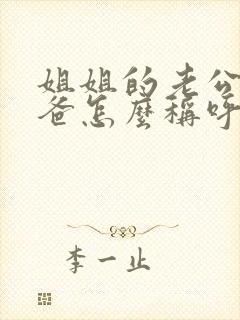 姐姐的老公爸
爸怎麼稱呼
李一止